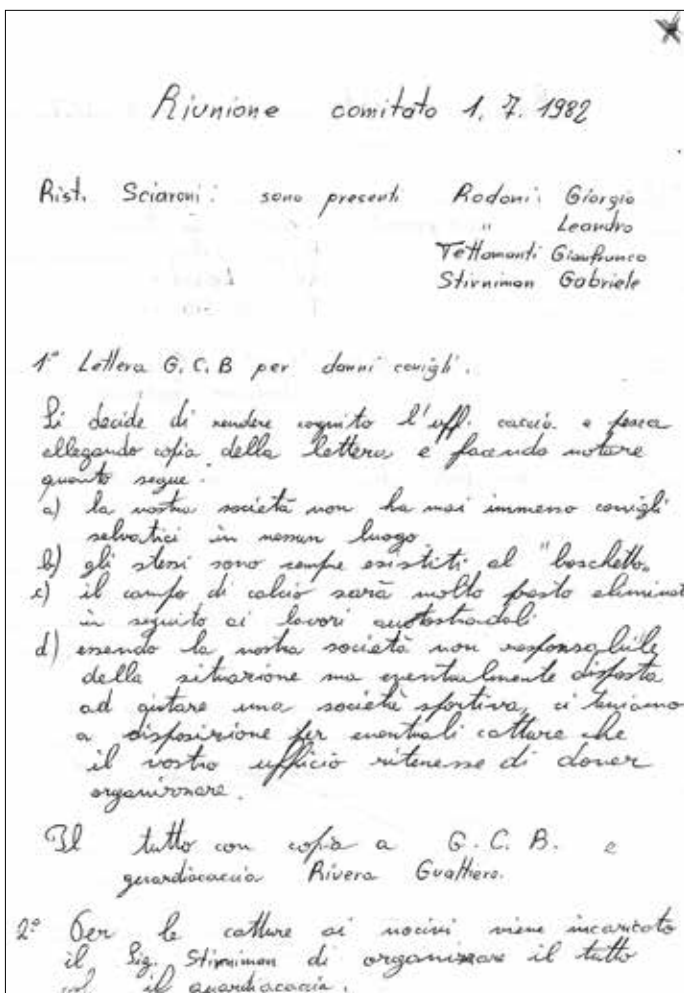 Riunione comitato 1. 7. 1982
Rist. Sciaroni: sono presenti Rodoni: Giorgio
" Leandro
Tettamanti Gianfranco
Stirniman Gabriele
1° Lettera G. C. B per danni conigli.
Si decide di rendere cognito l'uff. caccia e pesca
allegando copia della lettera e facendo notare
quanto segue:
a) la nostra società non ha mai immesso conigli
selvatici in nessun luogo.
b) gli stessi sono sempre esistiti al "boschetto„
c) il campo di calcio sarà molto presto eliminat
in seguito ai lavori autostradali
d) essendo la nostra società non responsabile
della situazione ma eventualmente disposta
ad aiutare una società sportiva, ci teniamo
a disposizione per eventuali catture che
il vostro ufficio ritenesse di dover
organizzare.
Il tutto con copia a G. C. B. e
guardiacaccia Rivera Gualtiero.
2° Per le catture ai nocivi viene incaricato
il Sig. Stirniman di organizzare il tutto
col il guardiacaccia.